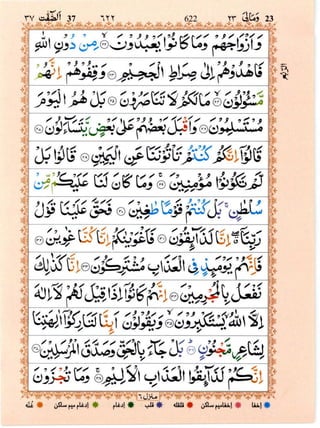 الصّٰٓفّٰت ٣٧ 37 ٦٢٢ 622 وَمَالِىَ ٢٣ 23
وَاَزۡوَاجَهُمۡ وَمَا كَانُوۡا يَعۡبُدُوۡنَۙ‏ ﴿۲۲﴾ مِنۡ دُوۡنِ اللّٰهِ
فَاهۡدُوۡهُمۡ اِلٰى صِرَاطِ الۡجَحِيۡمِ‏ ﴿۲۳﴾ وَقِفُوۡهُمۡ‌ اِنَّهُمۡ
مَّسْــُٔوۡلُوۡنَۙ‏ ﴿۲۴﴾ مَا لَـكُمۡ لَا تَنَاصَرُوۡنَ‏ ﴿۲۵﴾ بَلۡ هُمُ الۡيَوۡمَ
مُسۡتَسۡلِمُوۡنَ‏ ﴿۲۶﴾ وَاَقۡبَلَ بَعۡضُهُمۡ عَلٰى بَعۡضٍ يَّتَسَآءَلُوۡنَ‏ ﴿۲۷﴾
قَالُوۡۤا اِنَّكُمۡ كُنۡتُمۡ تَاۡتُوۡنَنَا عَنِ الۡيَمِيۡنِ‏ ﴿۲۸﴾ قَالُوۡا بَلْ
لَّمۡ تَكُوۡنُوۡا مُؤۡمِنِيۡنَ‌ۚ‏ ﴿۲۹﴾ وَمَا كَانَ لَنَا عَلَيۡكُمۡ مِّنۡ
سُلۡطٰنٍۚ بَلۡ كُنۡتُمۡ قَوۡمًا طٰغِيۡنَ‏ ﴿۳۰﴾ فَحَقَّ عَلَيۡنَا قَوۡلُ
رَبِّنَآ ‌ۖ اِنَّا لَذَآٮِٕقُوۡنَ‏ ﴿۳۱﴾ فَاَغۡوَيۡنٰكُمۡ اِنَّا كُنَّا غٰوِيۡنَ‏ ﴿۳۲﴾
فَاِنَّهُمۡ يَوۡمَٮِٕذٍ فِى الۡعَذَابِ مُشۡتَرِكُوۡنَ‏ ﴿۳۳﴾ اِنَّا كَذٰلِكَ
نَفۡعَلُ بِالۡمُجۡرِمِيۡنَ‏ ﴿۳۴﴾ اِنَّهُمۡ كَانُوۡۤا اِذَا قِيۡلَ لَهُمۡ لَاۤ اِلٰهَ
اِلَّا اللّٰهُۙ يَسۡتَكۡبِرُوۡنَۙ‏ ﴿۳۵﴾ وَيَقُوۡلُوۡنَ اَٮِٕنَّا لَتٰرِكُوۡۤا اٰلِهَـتِنَا
لِشَاعِرٍ مَّجۡـنُوۡنٍؕ‏ ﴿۳۶﴾ بَلۡ جَآءَ بِالۡحَقِّ وَصَدَّقَ الۡمُرۡسَلِيۡنَ‏ ﴿۳۷﴾
اِنَّكُمۡ لَذَآٮِٕقُوا الۡعَذَابِ الۡاَلِيۡمِ‌ۚ‏ ﴿۳۸﴾ وَمَا تُجۡزَوۡنَ
منزل ٦
اخفا اخفا میم ساکن قلقلہ قلب ادغام ادغام میم ساکن غنّہ